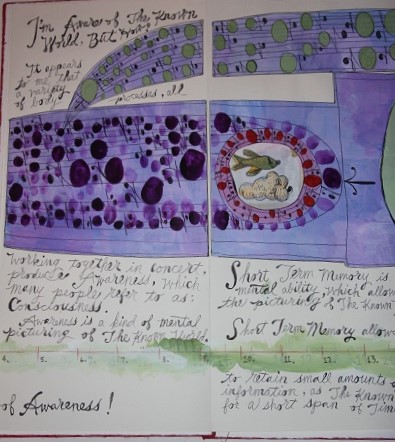 I'm Aware of The Known
World, But How?
It appears
to me that
a variety
of body
processes, all
working together in concert,
produce Awareness, which
many people refer to as:
Consciousness.
Awareness is a kind of mental
picturing of The Known World.
4. 5. 6.
of Awareness!
Short Term Memory is
mental ability which allow
the picturing of The Known
Short Term Memory allow
10. 11. 12. 13.
to retain small amounts
information, as The Known
for a short span of Time